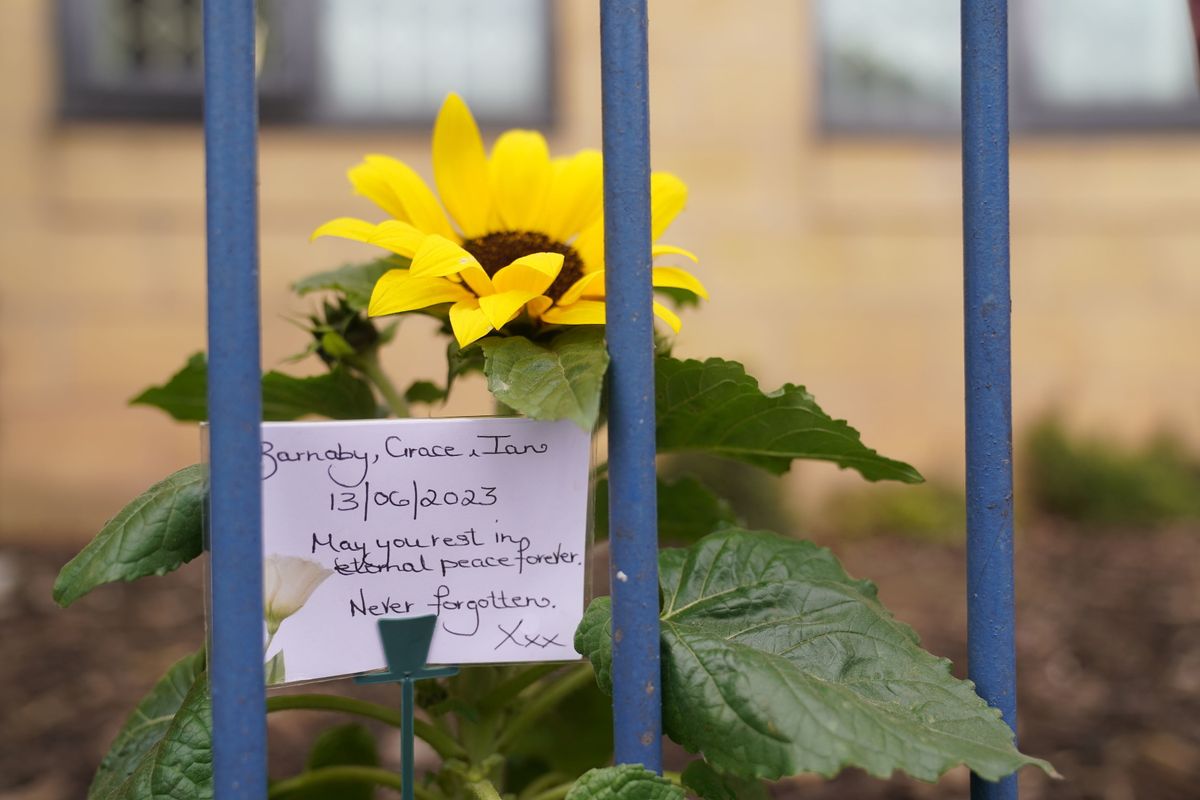 Barnaby, Grace, Ian
13/06/2023
May you rest in
eternal peace forever.
Never forgotten.
Xxx